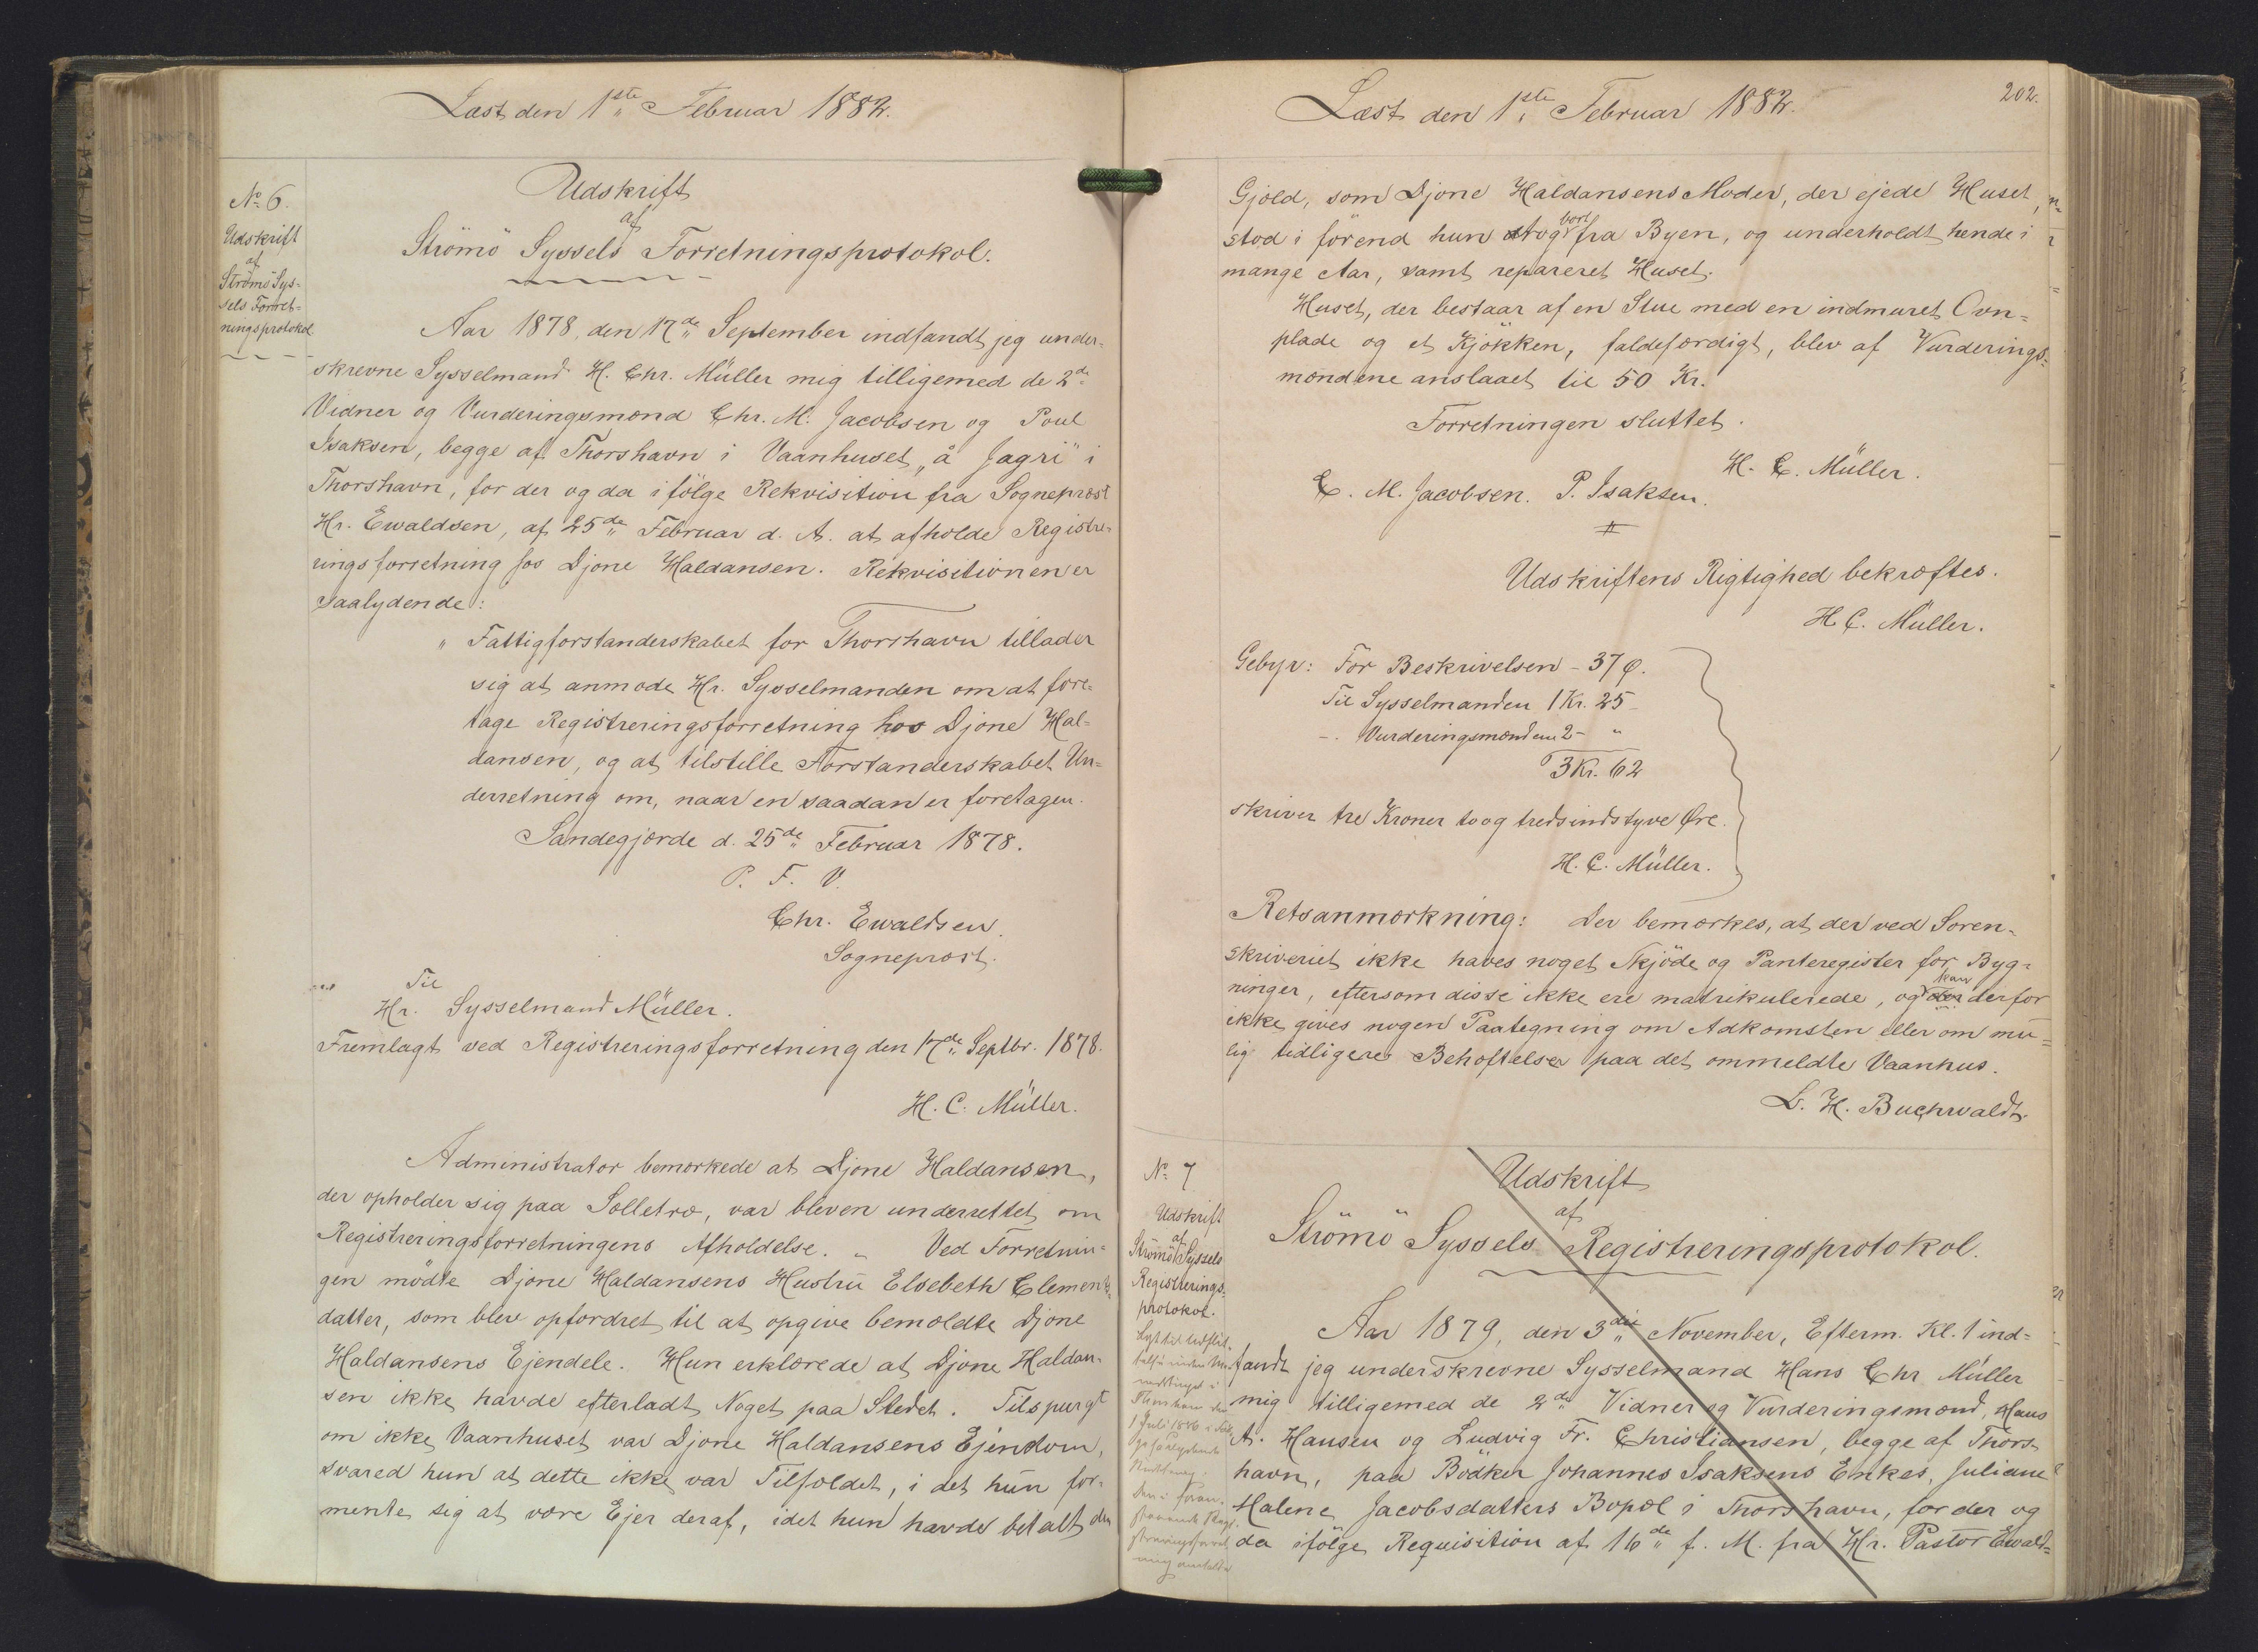 Læst den 1ste Februar 1882.
No 6.
Udskrift
af
Strömö Sys-
sels Forret-
ningsprotokol
Udskrift
af
Strömö Syssels Forretningsprotokol.
Aar 1878, den 17de September indfandt jeg under-
skrevne Sysselmand H. Chr. Müller mig tilligemed de 2de
Vidner og Vurderingsmænd Chr. M. Jacobsen og Poul
Isaksen, begge af Thorshavn i Vaanhuset „å Jagri" i
Thorshavn, for der og da ifölge Rekvisition fra Sognepræst
Hr. Ewaldsen, af 25de Februar d. A. at afholde Registre-
ringsforretning hos Djone Haldansen. Rekvisitionen er
saalydende:
„ Fattigforstanderskabet for Thorshavn tillader
sig at anmode Hr. Sysselmanden om at fore-
tage Registreringsforretning hos Djone Hal-
dansen, og at tilstille Forstanderskabet Un-
derretning om, naar en saadan er foretagen.
Sandegjærde d. 25de Februar 1878.
P. F. V.
Chr. Ewaldsen.
Sognepræst.
Til
Hr. Sysselmand Müller.
Fremlagt ved Registreringsforretning den 17de Septbr. 1878.
H. C. Müller.
Administrator bemærkede at Djone Haldansen,
der opholder sig paa Solletræ, var bleven underrettet om
Registreringsforretningens Afholdelse. „ Ved Forretnin-
gen mödte Djone Haldansens Hustru Elsebeth Clements-
datter, som blev opfordret til at opgive bemældte Djone
Haldansens Ejendele. Hun erklærede at Djone Haldan-
sen ikke havde efterladt Noget paa Stedet. Tilspurgt
om ikke Vaanhuset var Djone Haldansens Ejendom,
svared hun at dette ikke var Tilfældet, i det hun for-
mente sig at være Ejer deraf, idet hun havde betalt den
Læst den 1ste Februar 1882.
202.
Gjæld, som Djone Haldansens Moder, der ejede Huset,
stod i förend hun drog bort fra Byen, og underholdt hende i
mange Aar, samt repareret Huset.
Huset, der bestaar af en Stue med en indmuret Ovn-
plade og et Kjökken, faldefærdigt, blev af Vurderings-
mændene anslaaet til 50 Kr.
Forretningen sluttet.
H. C. Müller.
C. M. Jacobsen. P. Isaksen.
Udskriftens Rigtighed bekræftes.
H. C. Müller.
Gebyr: For Beskrivelsen - 37 Ø.
Til Sysselmanden 1 Kr. 25 -
-. Vurderingsmændene 2 - „
3 Kr. 62
skriver tre Kroner to og tredsindstyve Øre.
H. C. Müller.
Retsanmærkning: Der bemærkes, at der ved Soren-
skriveriet ikke haves noget Skjöde og Panteregister for Byg-
ninger, eftersom disse ikke ere matrikulerede, og kan derfor
ikke gives nogen Paategning om Adkomsten eller om mu-
lig tidligere Behæftelser paa det ommeldte Vaanhus.
L. H. Buchwaldt.
No 7
Udskrift
af
Strömö Syssels
Registrerings-
protokol.
Udskrift
af
Strömö Syssels Registreringsprotokol.
Aar 1879, den 3die November, Efterm. Kl. 1 ind-
fandt jeg underskrevne Sysselmand Hans Chr Müller
mig tilligemed de 2de Vidner og Vurderingsmænd, Hans
A. Hansen og Ludvig Fr. Christiansen, begge af Thors-
havn, paa Bödker Johannes Isaksens Enkes, Juliane
Malene Jacobsdatters Bopæl i Thorshavn, for der og
da ifölge Requisition af 16de f. M. fra Hr. Pastor Ewald-